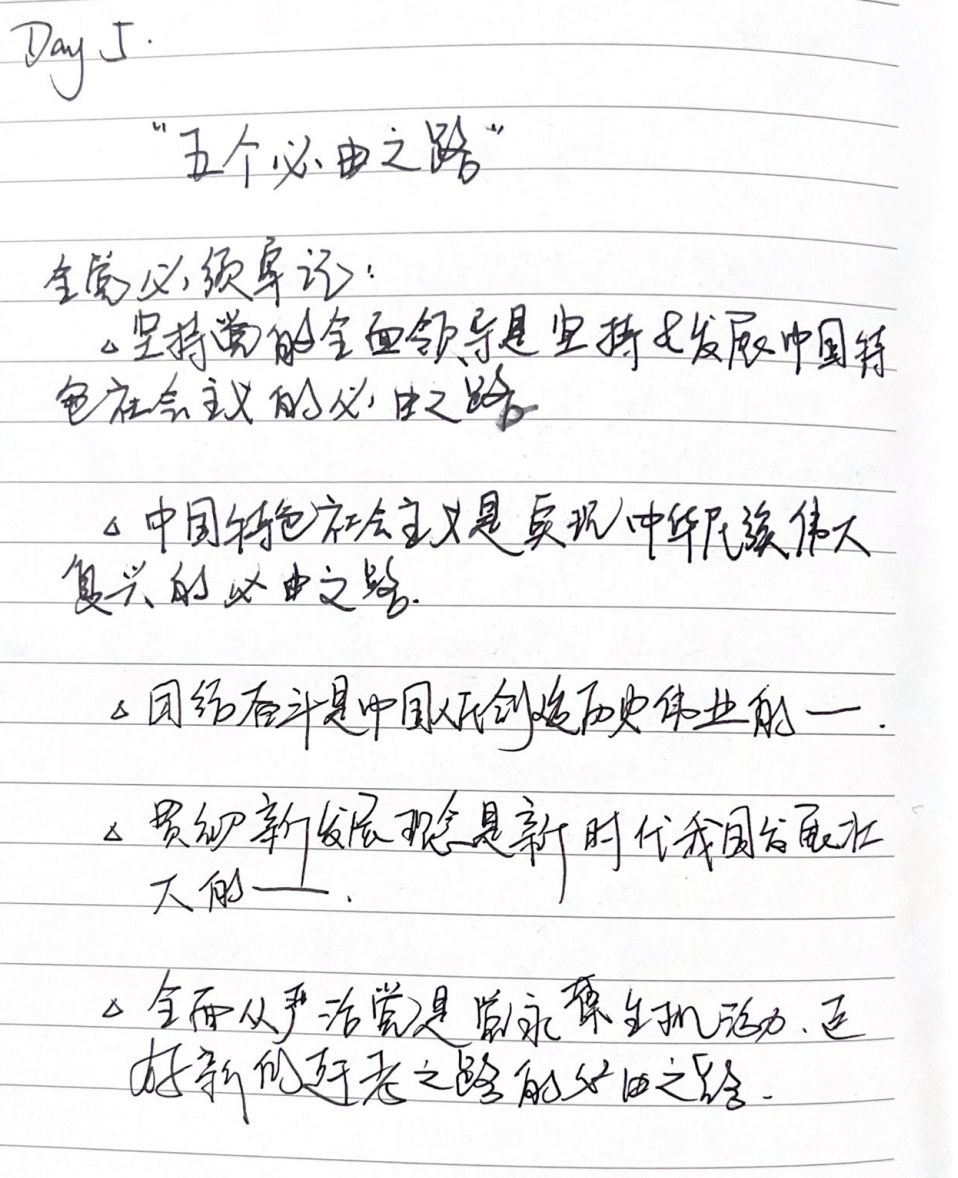 Day 5.
“五个必由之路”
全党必须牢记：
△坚持党的全面领导是坚持和发展中国特
色社会主义的必由之路
△ 中国特色社会主义是实现中华民族伟大
复兴的必由之路.
△ 团结奋斗是中国人民创造历史伟业的——.
△ 贯彻新发展理念是新时代我国发展壮
大的——.
△ 全面从严治党是党永葆生机活力、走
好新的赶考之路的必由之路.